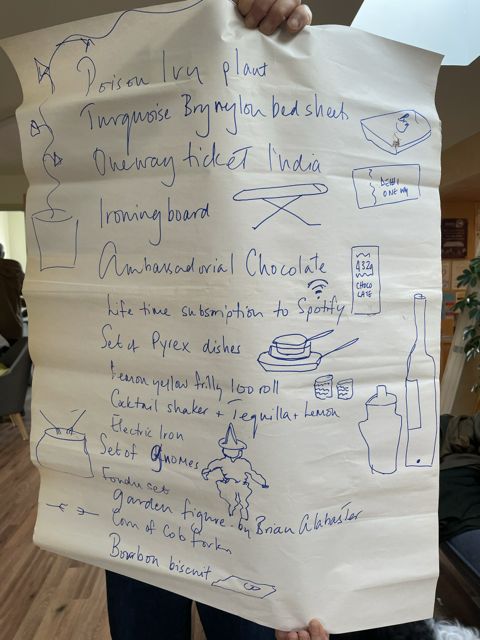 Poison Ivy plant
Turquoise Brynylon bedsheets
One way ticket India
DELHI
ONE WAY
Ironing board
Ambassadorial Chocolate
432g
CHOCO
LATE
Life time subsmiption to Spotify
Set of Pyrex dishes
Lemon yellow frilly loo roll
Cocktail shaker + Tequilla + Lemon
Electric Iron
Set of Gnomes
Fondu set
garden figure - by Brian Alabaster
Corn of Cob forks
Bourbon biscuit